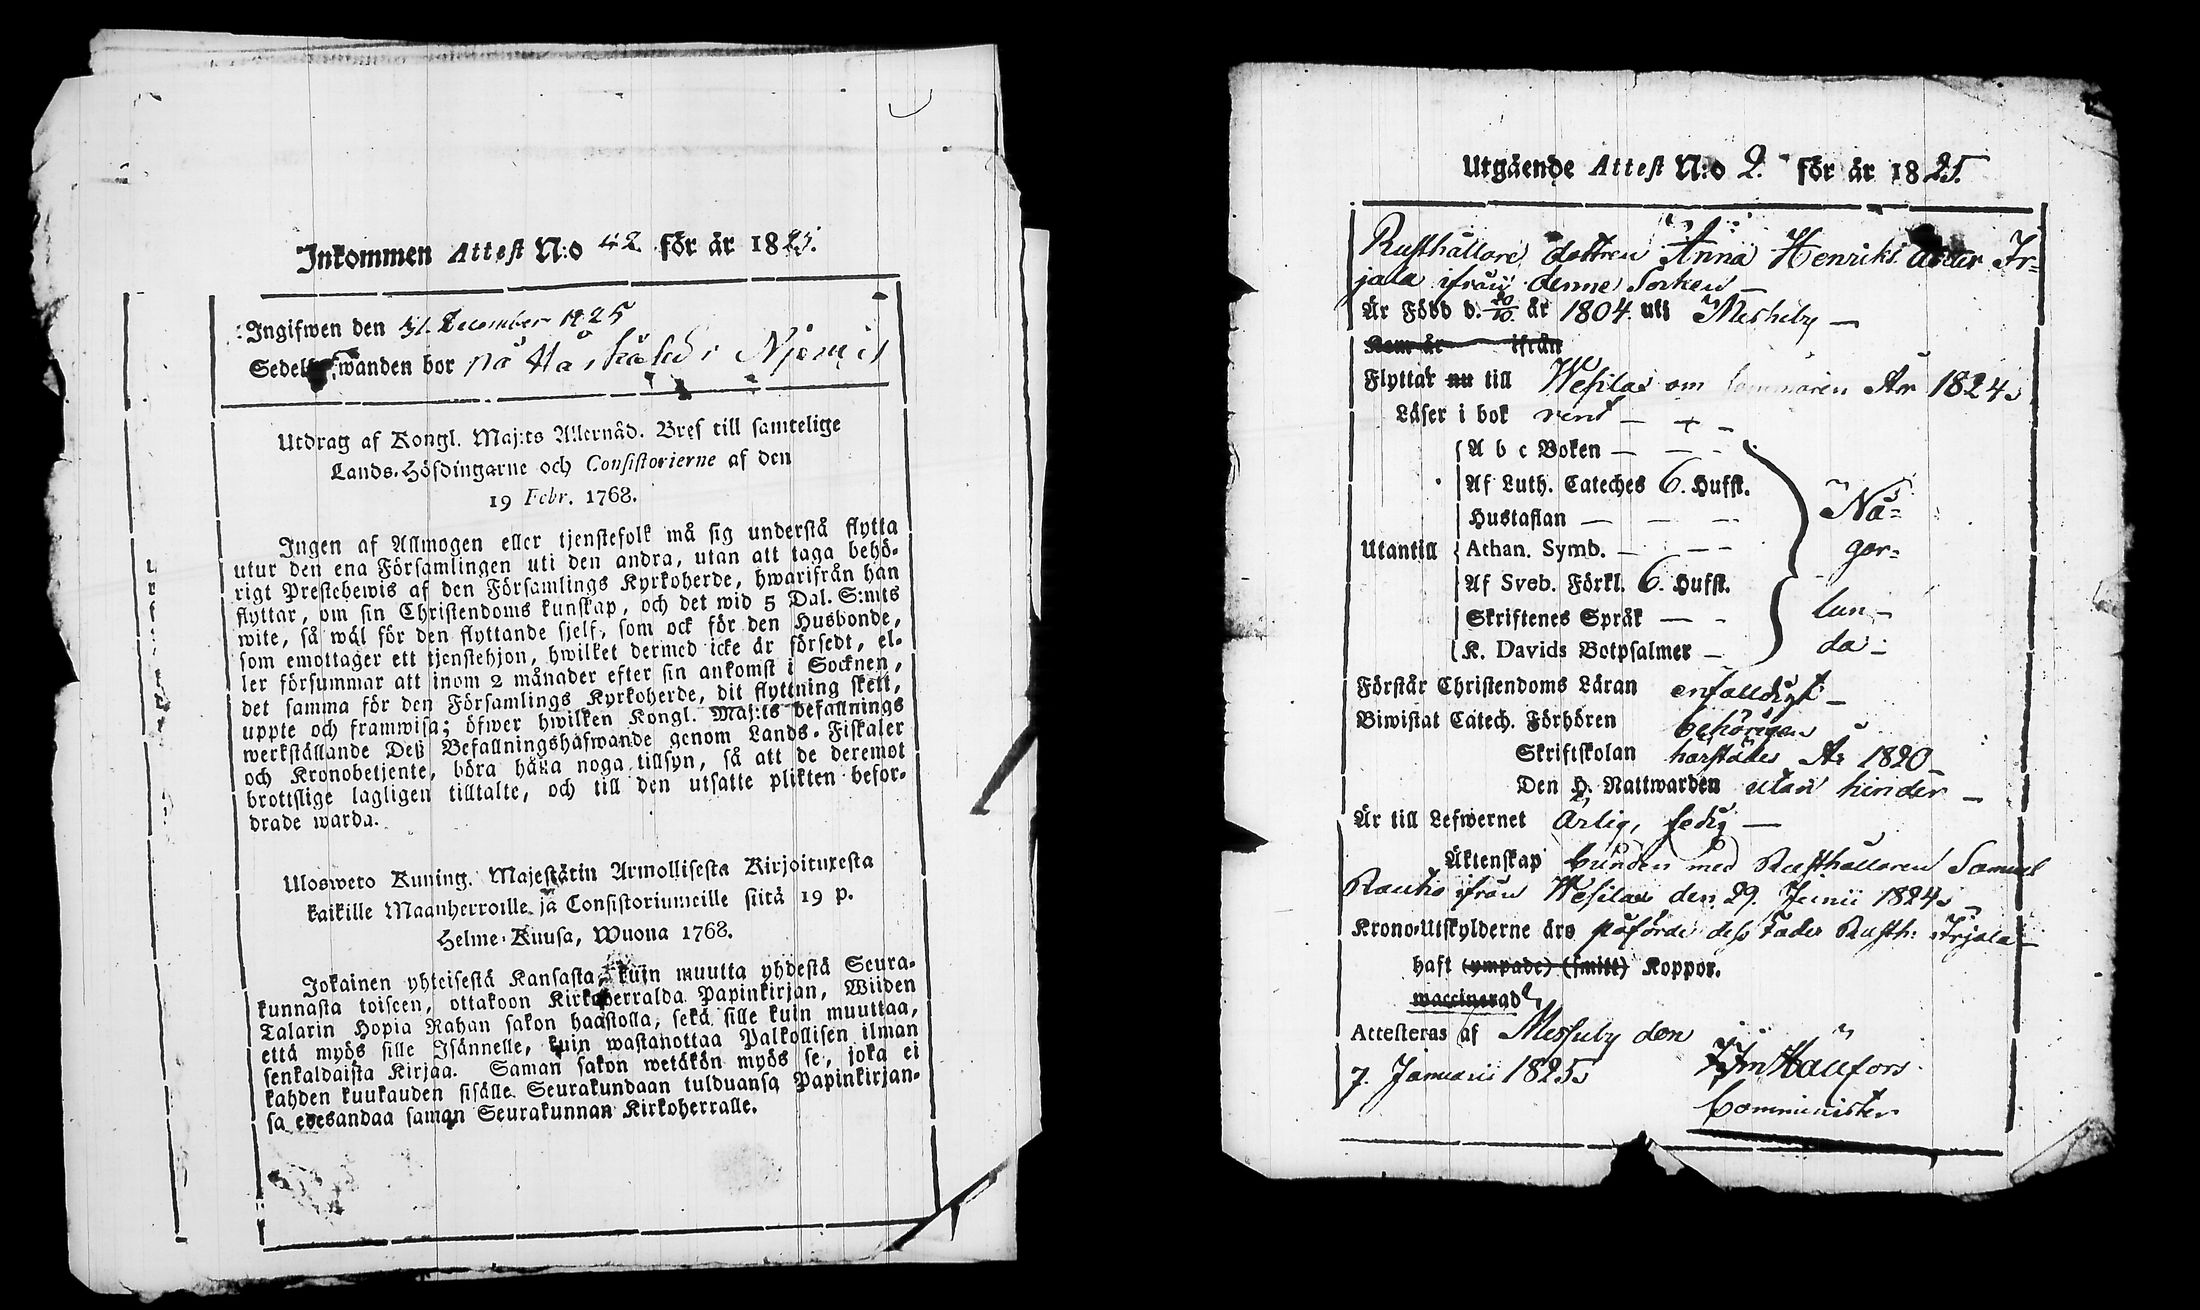 Inkommen Attest N:o 42 för år 1825.
Ingifwen den 31. December 1825
Sedel wanden bor på
Utdrag af Kongl. Maj:ts Allernåd. Bref till samtelige
Lands-Höfdingarne och Consistorierne af den
19 Febr. 1768.
Ingen af Allmogen eller tjenstefolk må sig understå flytta
utur den ena Församlingen uti den andra, utan att taga behö-
rigt Prestebewis af den Församlings Kyrkoherde, hwarifrån han
flyttar, om sin Christendoms kunskap, och det wid 5 Dal. S:mts
wite, så wäl för den flyttande sjelf, som ock för den Husbonde,
som emottager ett tjenstehjon, hwilket dermed icke är försedt, el-
ler försummar att inom 2 månader efter sin ankomst i Socknen,
det samma för den Församlings Kyrkoherde, dit flyttning skett,
uppte och framwisa; öfwer hwilken Kongl. Maj:ts befallnings
werkställande Deß Befallningshafwande genom Lands-Fiskaler
och Kronobetjente, böra hafwa noga tillsyn, så att de deremot
brottslige lagligen tilltalte, och till den utsatte plikten befor-
drade warda.
Uloswero Kuning. Majestätin Armollisesta Kirjoituxesta
kaikille Maanherroille ja Consistoriumeille siitä 19 p.
Helme-Kuusa, Wuona 1768.
Jokainen yhteisestä Kansasta, kuin muutta yhdestä Seura-
kunnasta toiseen, ottakoon Kirkoherralda Papinkirjan, Wiiden
Talarin Hopia Rahan sakon haastolla, sekä sille kuin muuttaa,
että myös sille Isännelle, kuin wastanottaa Palkollisen ilman
senkaldaista Kirjaa. Saman sakon wetäkön myös se, joka ei
kahden kuukauden sisälle Seurakundaan tulduansa Papinkirjan-
sa edesandaa saman Seurakunnan Kirkoherralle.
Utgående Attest N:o 2. för år 1825.
Rusthållare dottren Anna Henriks dotter Ir-
jala ifrån denne Sorken
Är Född d. 20/10. år 1804. uti Messuby
Kom år ifrån
Flyttar nu till Wesilax om sommaren År 1824
Läser i bok rent
A b c Boken
Af Luth. Cateches 6. Hufst.
Hustaflan
Utantill Athan. Symb.
Af Sveb. Förkl. 6. Hufst.
Skriftenes Språk
K. Davids Botpsalmer
Nå-
gor-
lun-
da
Förstår Christendoms Läran enfalldigt
Biwistat Catech. Förhören behörigen
Skriftskolan härstädes År 1820
Den H. Nattwarden utan hinder
Är till Lefwernet Ärlig, sedig
Äktenskap bunden med Rusthållaren Samuel
Rauho ifrån Wesilax den 29. Junii 1824
Krono-Utskylderne äro påförde dess Fader Rusth: Irjala
haft (ympade) (smitt) Koppor.
waccinerad
Attesteras af Messuby den
7. Januarii 1825 Hällfors
Comminister